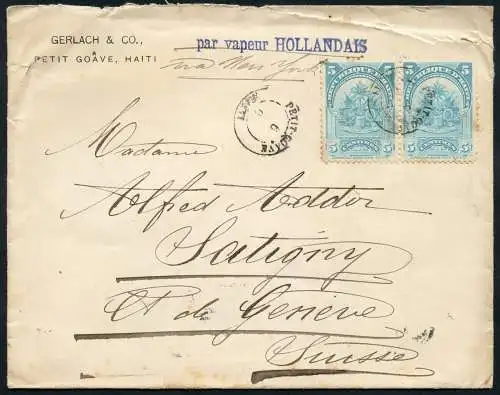 GERLACH & CO.,
PETIT GOÂVE, HAITI
par vapeur HOLLANDAIS
via New York
5 5 5 5
PETIT-GOAVE
5 5 5 5
Madame
Alfred Addor
Satigny
Ct de Genève
Suisse